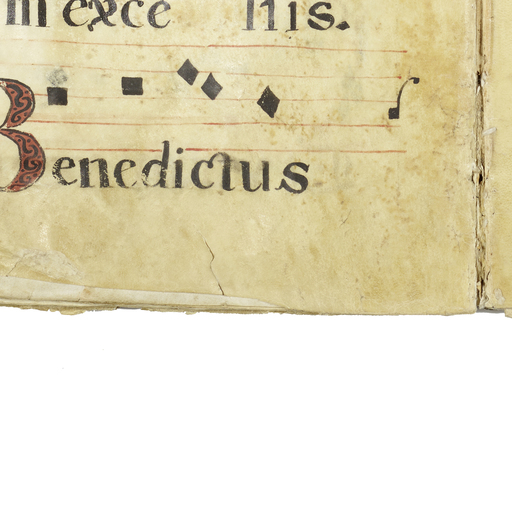 in exce lsis.
Benedictus